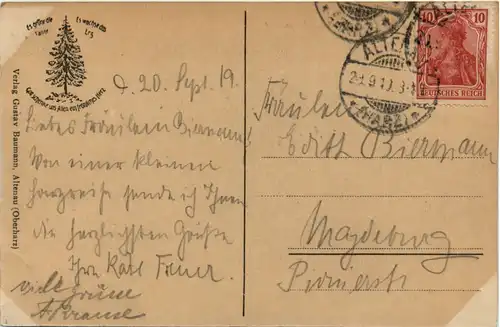 Es grüne die Tanne
Es wachse das Erz
Gott schenke uns Allen ein fröhliches Herz
Verlag Gustav Baumann, Altenau (Oberharz)
d. 20. Sept. 19.
Liebes Fräulein Biermann!
Von einer kleinen
Harzreise sende ich Ihnen
die herzlichsten Grüße
Ihr Karl
viele Grüße
Krause
ALTENAU
(HARZ)
10
10
DEUTSCHES REICH
Fräulein
Edith Biermann
Magdeburg